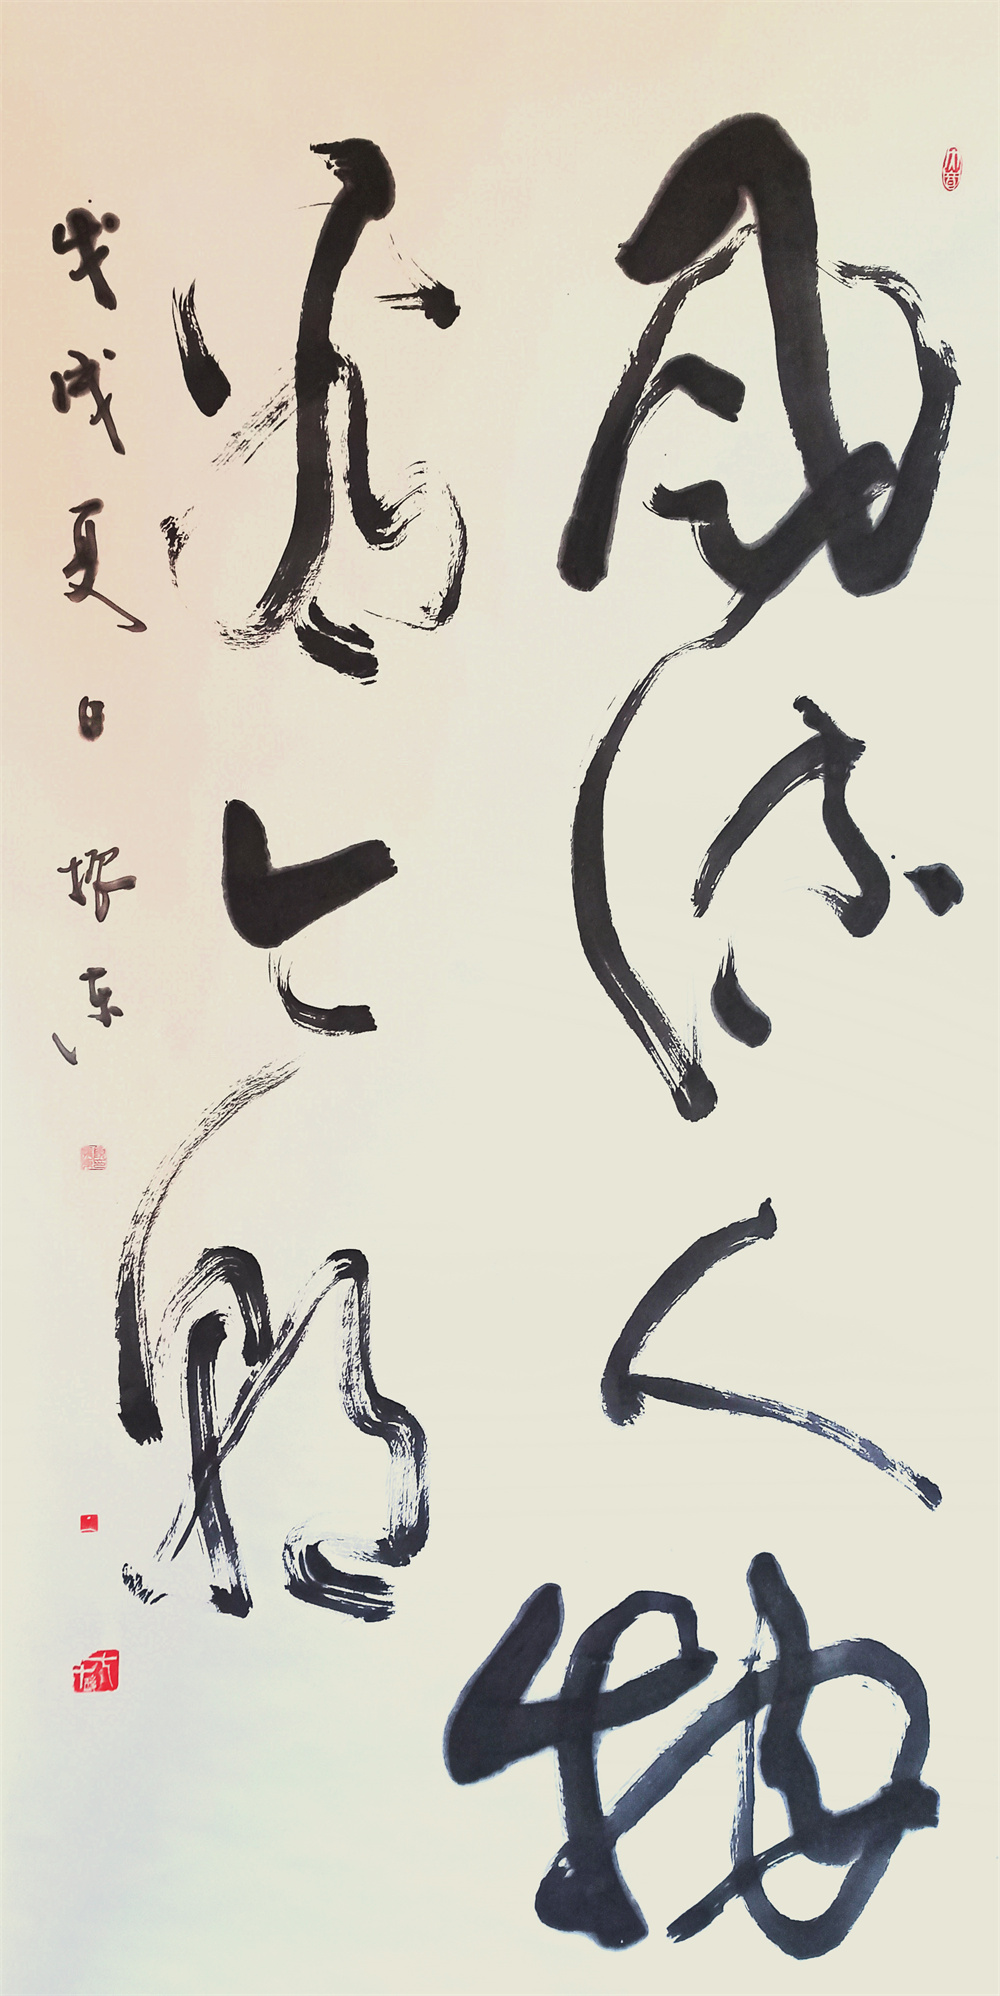 風流人物
還看今朝
戊戌夏日振東